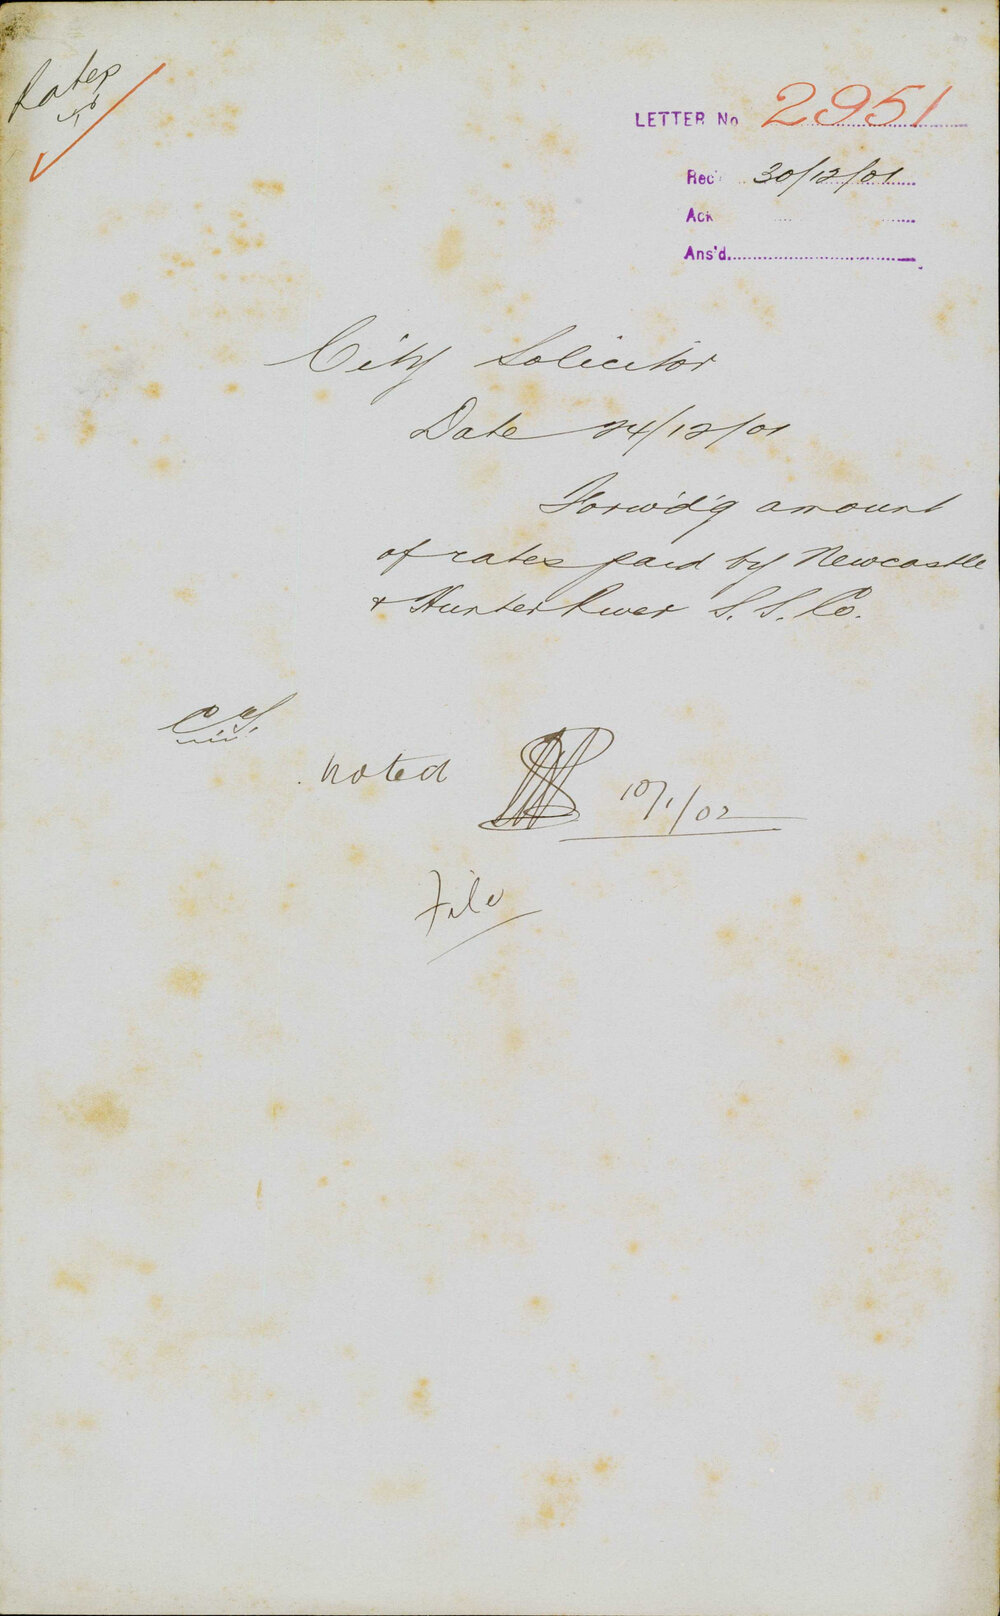 Rates
LETTER No 2951
Rec'd 30/12/01
Ack
Ans'd.
City Solicitor
Date 24/12/01
Forw'd'g amount
of rates paid by Newcastle
& Hunter River S. S. Co.
C. S.
Noted 10/1/02
File